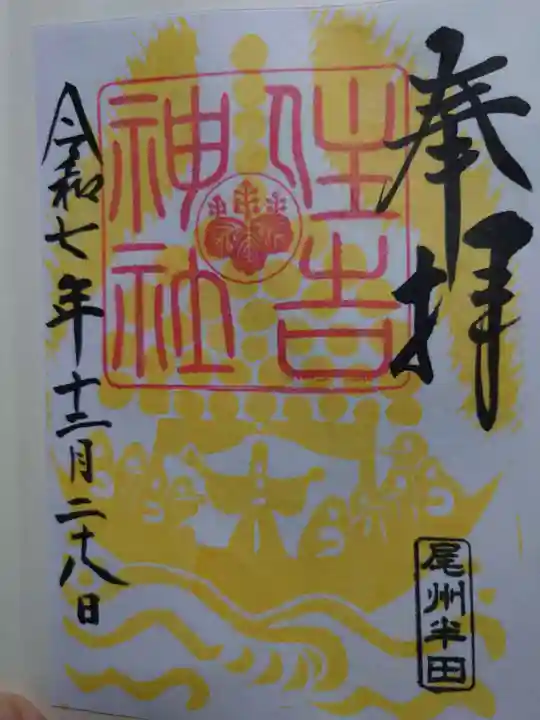 奉拝
住吉
神社
令和七年十二月二十八日
尾州半田